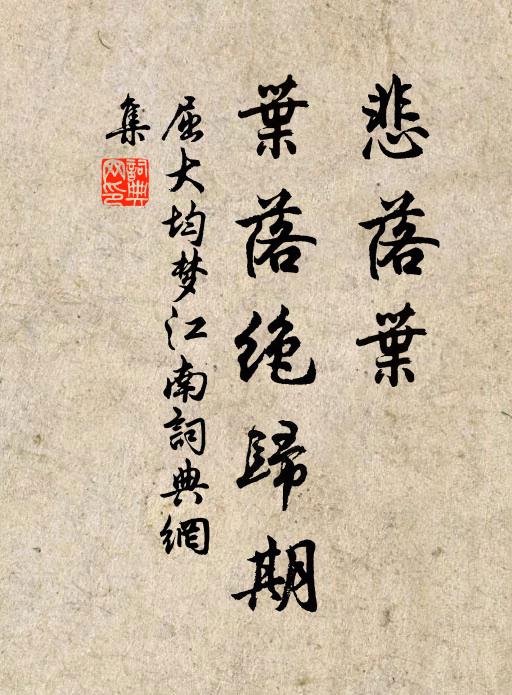 悲落葉
葉落絶歸期
屈大均梦江南詞典網
集
詞典網印